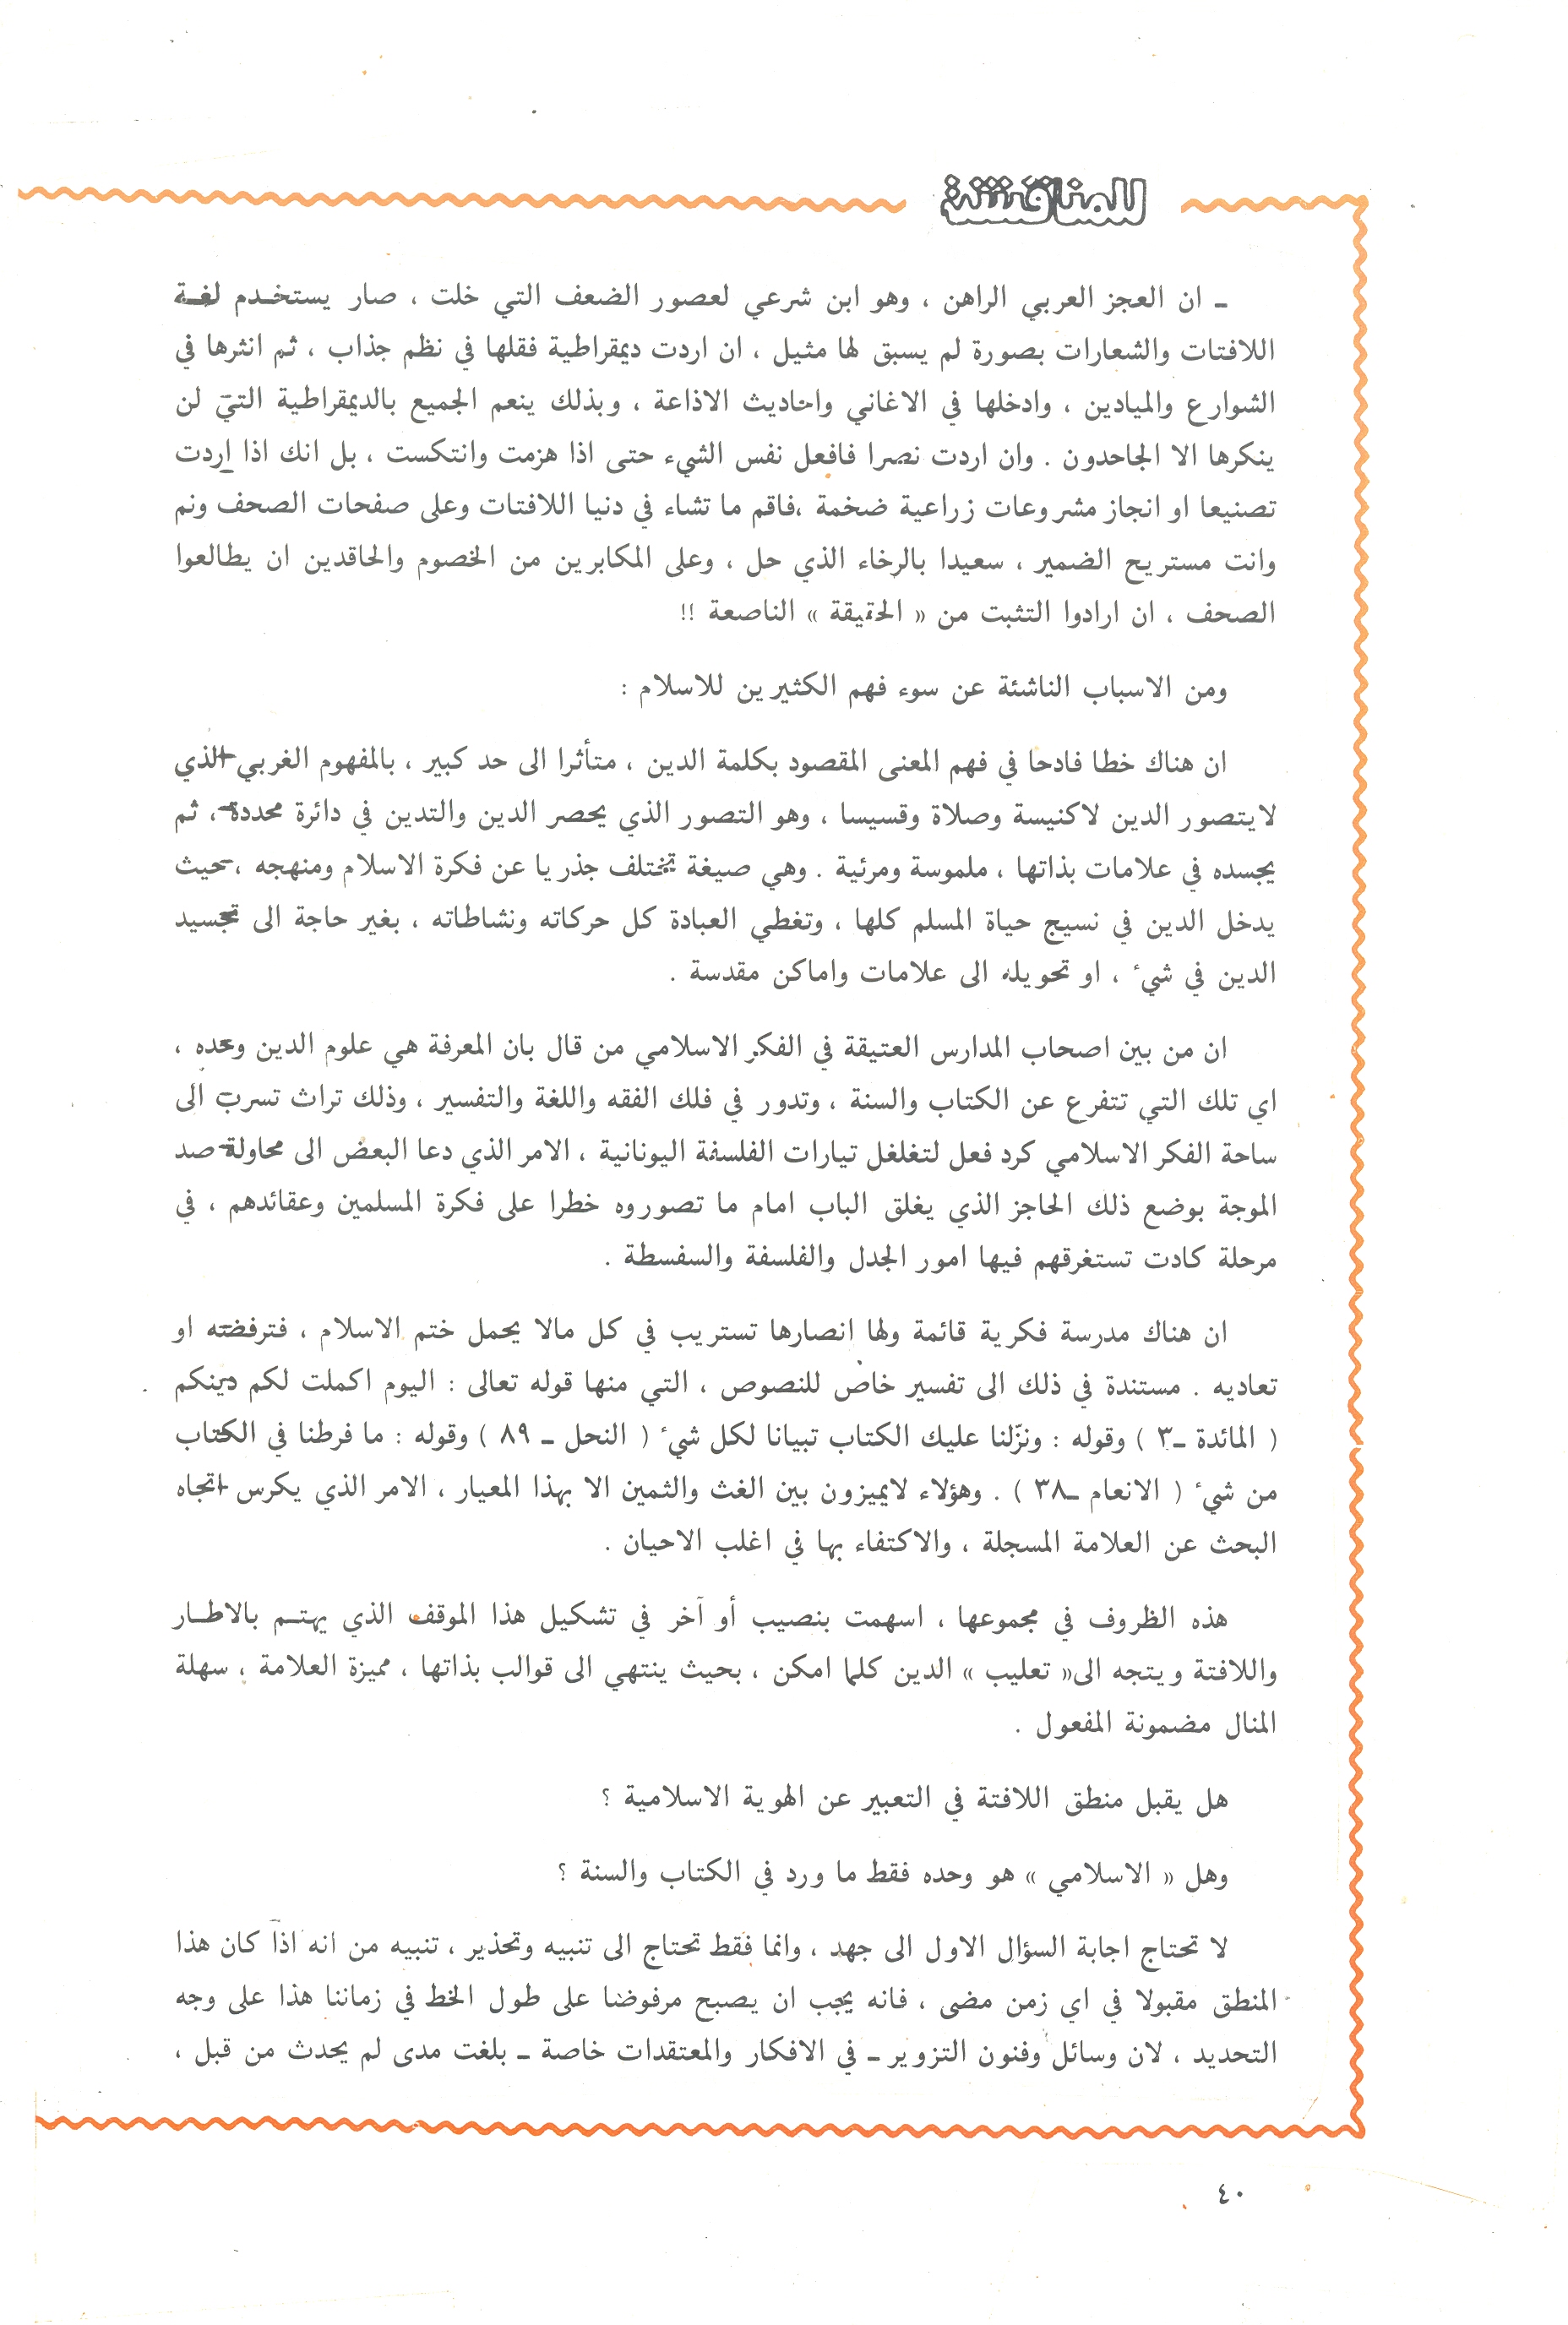 للمناقشة
ـ ان العجز العربي الراهن ، وهو ابن شرعي لعصور الضعف التي خلت ، صار يستخدم لغة
اللافتات والشعارات بصورة لم يسبق لها مثيل ، ان اردت ديمقراطية فقلها في نظم جذاب ، ثم انثرها في
الشوارع والميادين ، وادخلها في الاغاني واحاديث الاذاعة ، وبذلك ينعم الجميع بالديمقراطية التي لن
ينكرها الا الجاحدون . وان اردت نصرا فافعل نفس الشيء حتى اذا هزمت وانتكست ، بل انك اذا اردت
تصنيعا او انجاز مشروعات زراعية ضخمة ،فاقم ما تشاء في دنيا اللافتات وعلى صفحات الصحف ونم
وانت مستريح الضمير ، سعيدا بالرخاء الذي حل ، وعلى المكابرين من الخصوم والحاقدين ان يطالعوا
الصحف ، ان ارادوا التثبت من « الحقيقة » الناصعة !!
ومن الاسباب الناشئة عن سوء فهم الكثيرين للاسلام :
ان هناك خطا فادحا في فهم المعنى المقصود بكلمة الدين ، متأثرا الى حد كبير ، بالمفهوم الغربي الذي
لايتصور الدين لاكنيسة وصلاة وقسيسا ، وهو التصور الذي يحصر الدين والتدين في دائرة محددة ، ثم
يجسده في علامات بذاتها ، ملموسة ومرئية . وهي صيغة تختلف جذريا عن فكرة الاسلام ومنهجه ، حيث
يدخل الدين في نسيج حياة المسلم كلها ، وتغطي العبادة كل حركاته ونشاطاته ، بغير حاجة الى تجسيد
الدين في شيء ، او تحويله الى علامات واماكن مقدسة .
ان من بين اصحاب المدارس العتيقة في الفكر الاسلامي من قال بان المعرفة هي علوم الدين وحده ،
اي تلك التي تتفرع عن الكتاب والسنة ، وتدور في فلك الفقه واللغة والتفسير ، وذلك تراث تسرب الى
ساحة الفكر الاسلامي كرد فعل لتغلغل تيارات الفلسفة اليونانية ، الامر الذي دعا البعض الى محاولة صد
الموجة بوضع ذلك الحاجز الذي يغلق الباب امام ما تصوروه خطرا على فكرة المسلمين وعقائدهم ، في
مرحلة كادت تستغرقهم فيها امور الجدل والفلسفة والسفسطة .
ان هناك مدرسة فكرية قائمة ولها انصارها تستريب في كل مالا يحمل ختم الاسلام ، فترفضه او
تعاديه . مستندة في ذلك الى تفسير خاص للنصوص ، التي منها قوله تعالى : اليوم اكملت لكم دينكم
( المائدة ـ٣ ) وقوله : ونزّلنا عليك الكتاب تبيانا لكل شيء ( النحل ـ ٨٩ ) وقوله : ما فرطنا في الكتاب
من شيء ( الانعام ـ٣٨ ) . وهؤلاء لايميزون بين الغث والثمين الا بهذا المعيار ، الامر الذي يكرس اتجاه
البحث عن العلامة المسجلة ، والاكتفاء بها في اغلب الاحيان .
هذه الظروف في مجموعها ، اسهمت بنصيب أو آخر في تشكيل هذا الموقف الذي يهتم بالاطار
واللافتة ويتجه الى« تعليب » الدين كلما امكن ، بحيث ينتهي الى قوالب بذاتها ، مميزة العلامة ، سهلة
المنال مضمونة المفعول .
هل يقبل منطق اللافتة في التعبير عن الهوية الاسلامية ؟
وهل « الاسلامي » هو وحده فقط ما ورد في الكتاب والسنة ؟
لا تحتاج اجابة السؤال الاول الى جهد ، وانما فقط تحتاج الى تنبيه وتحذير ، تنبيه من انه اذا كان هذا
المنطق مقبولا في اي زمن مضى ، فانه يجب ان يصبح مرفوضا على طول الخط في زماننا هذا على وجه
التحديد ، لان وسائل وفنون التزوير ـ في الافكار والمعتقدات خاصة ـ بلغت مدى لم يحدث من قبل ،
٤٠